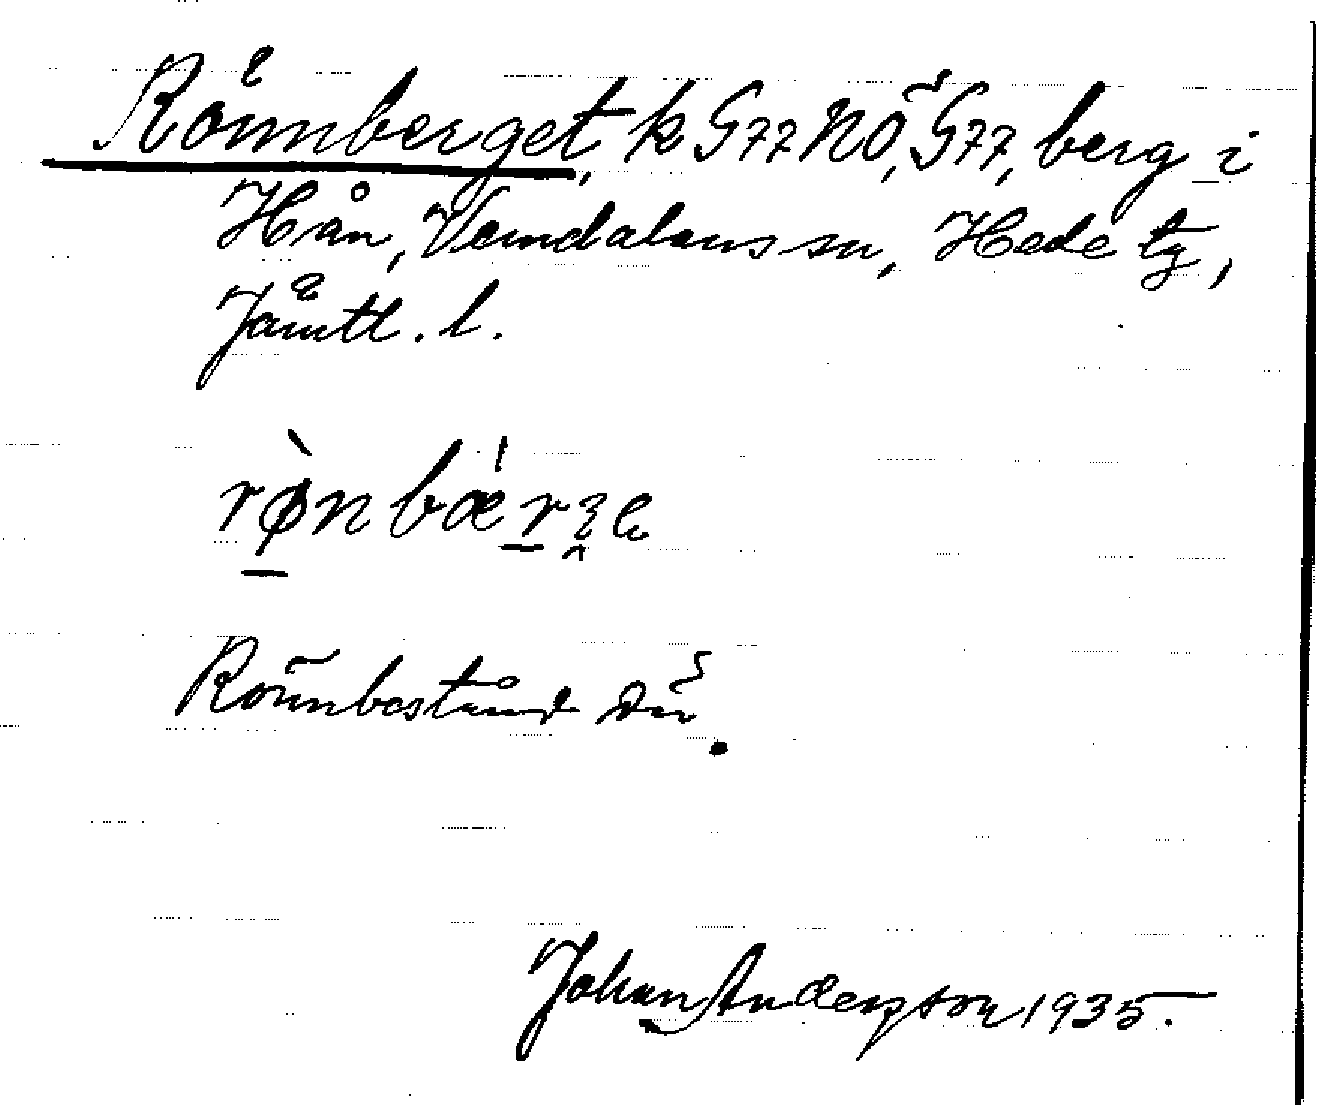 Rönnberget, k G77 NÖ, G77, berg i
Hån, Vemdalens sn, Hede tg,
Jämtl. l.
rø̀nbærʒe
Rönnbestånd där.
Johan Anderson 1935.